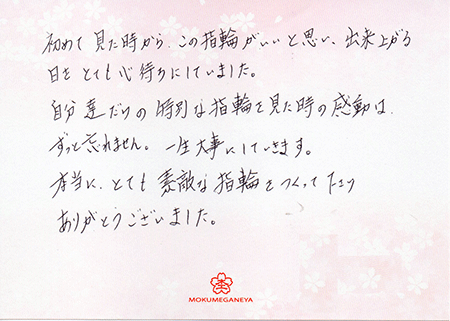 初めて見た時から、この指輪がいいと思い、出来上がる
日をとても心待ちにしていました。
自分達だけの特別な指輪を見た時の感動は、
ずっと忘れません。一生大事にしていきます。
本当に、とても素敵な指輪をつくって下さり
ありがとうございました。
MOKUMEGANEYA